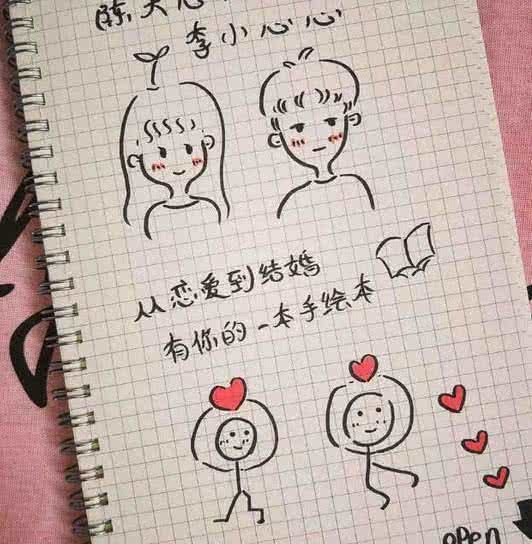 李小心心
从恋爱到结婚
有你的一本手绘本
open